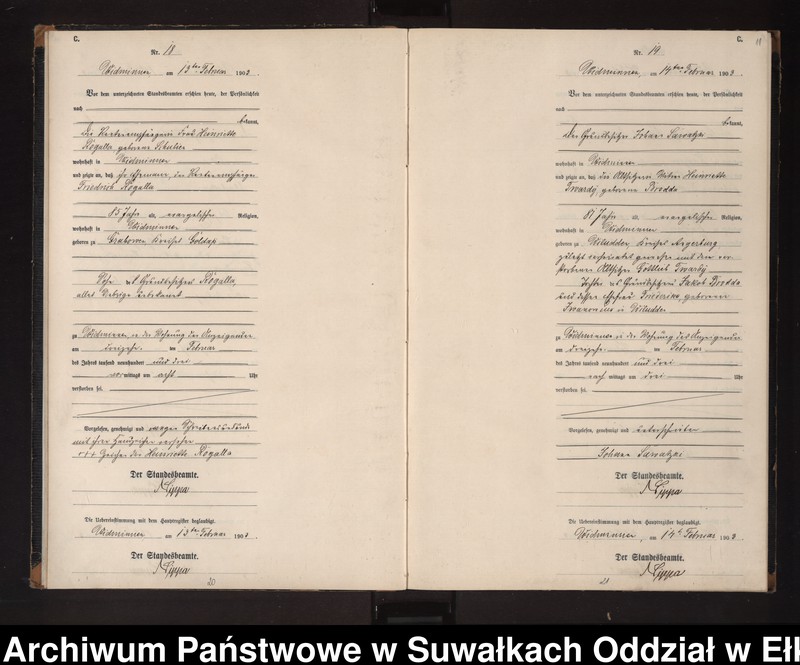 C.
Nr. 18
Widminnen am 13ten Februar 1903.
Vor dem unterzeichneten Standesbeamten erschien heute, der Persönlichkeit
nach
bekannt,
die Frau Henriette
Rogalla, geborene
wohnhaft in Widminnen
und zeigte an, daß ihr Ehemann, der
Friedrich Rogalla
85 Jahre alt, evangelischer Religion,
wohnhaft in Widminnen
geboren zu Grabowen Kreises Goldap
Sohn des Grundbesitzers Rogalla,
alles Uebrige unbekannt
zu Widminnen, in der Wohnung der Anzeigenden
am dreizehnten Februar
des Jahres tausend neunhundert und drei
vor mittags um acht Uhr
verstorben sei.
Vorgelesen, genehmigt und wegen Schreibensunkunde
mit ihrem Handzeichen versehen
+++ Zeichen der Henriette Rogalla
Der Standesbeamte.
Lippa
Die Uebereinstimmung mit dem Hauptregister beglaubigt.
Widminnen am 13ten Februar 1903.
Der Standesbeamte.
Lippa
20
C.
Nr. 19
Widminnen, am 14ten Februar 1903.
Vor dem unterzeichneten Standesbeamten erschien heute, der Persönlichkeit
nach
bekannt,
der Grundbesitzer Johann
wohnhaft in Widminnen
und zeigte an, daß die Altsitzerin Witwe Henriette
Twardy, geborene Brodda
81 Jahre alt, evangelischer Religion,
wohnhaft in Widminnen
geboren zu Kreises Angerburg
zuletzt verheiratet gewesen mit dem ver-
storbenen Altsitzer Gottlieb Twardy
Tochter des Grundbesitzers Jakob Brodda
und dessen Ehefrau Friederike, geborenen
in
zu Widminnen in der Wohnung des Anzeigenden
am dreizehnten Februar
des Jahres tausend neunhundert und drei
nach mittags um drei Uhr
verstorben sei.
Vorgelesen, genehmigt und unterschrieben
Johann
Der Standesbeamte.
Lippa
Die Uebereinstimmung mit dem Hauptregister beglaubigt.
Widminnen, am 14ten Februar 1903
Der Standesbeamte.
Lippa
21
Archiwum Państwowe w Suwałkach Oddział w Ełk